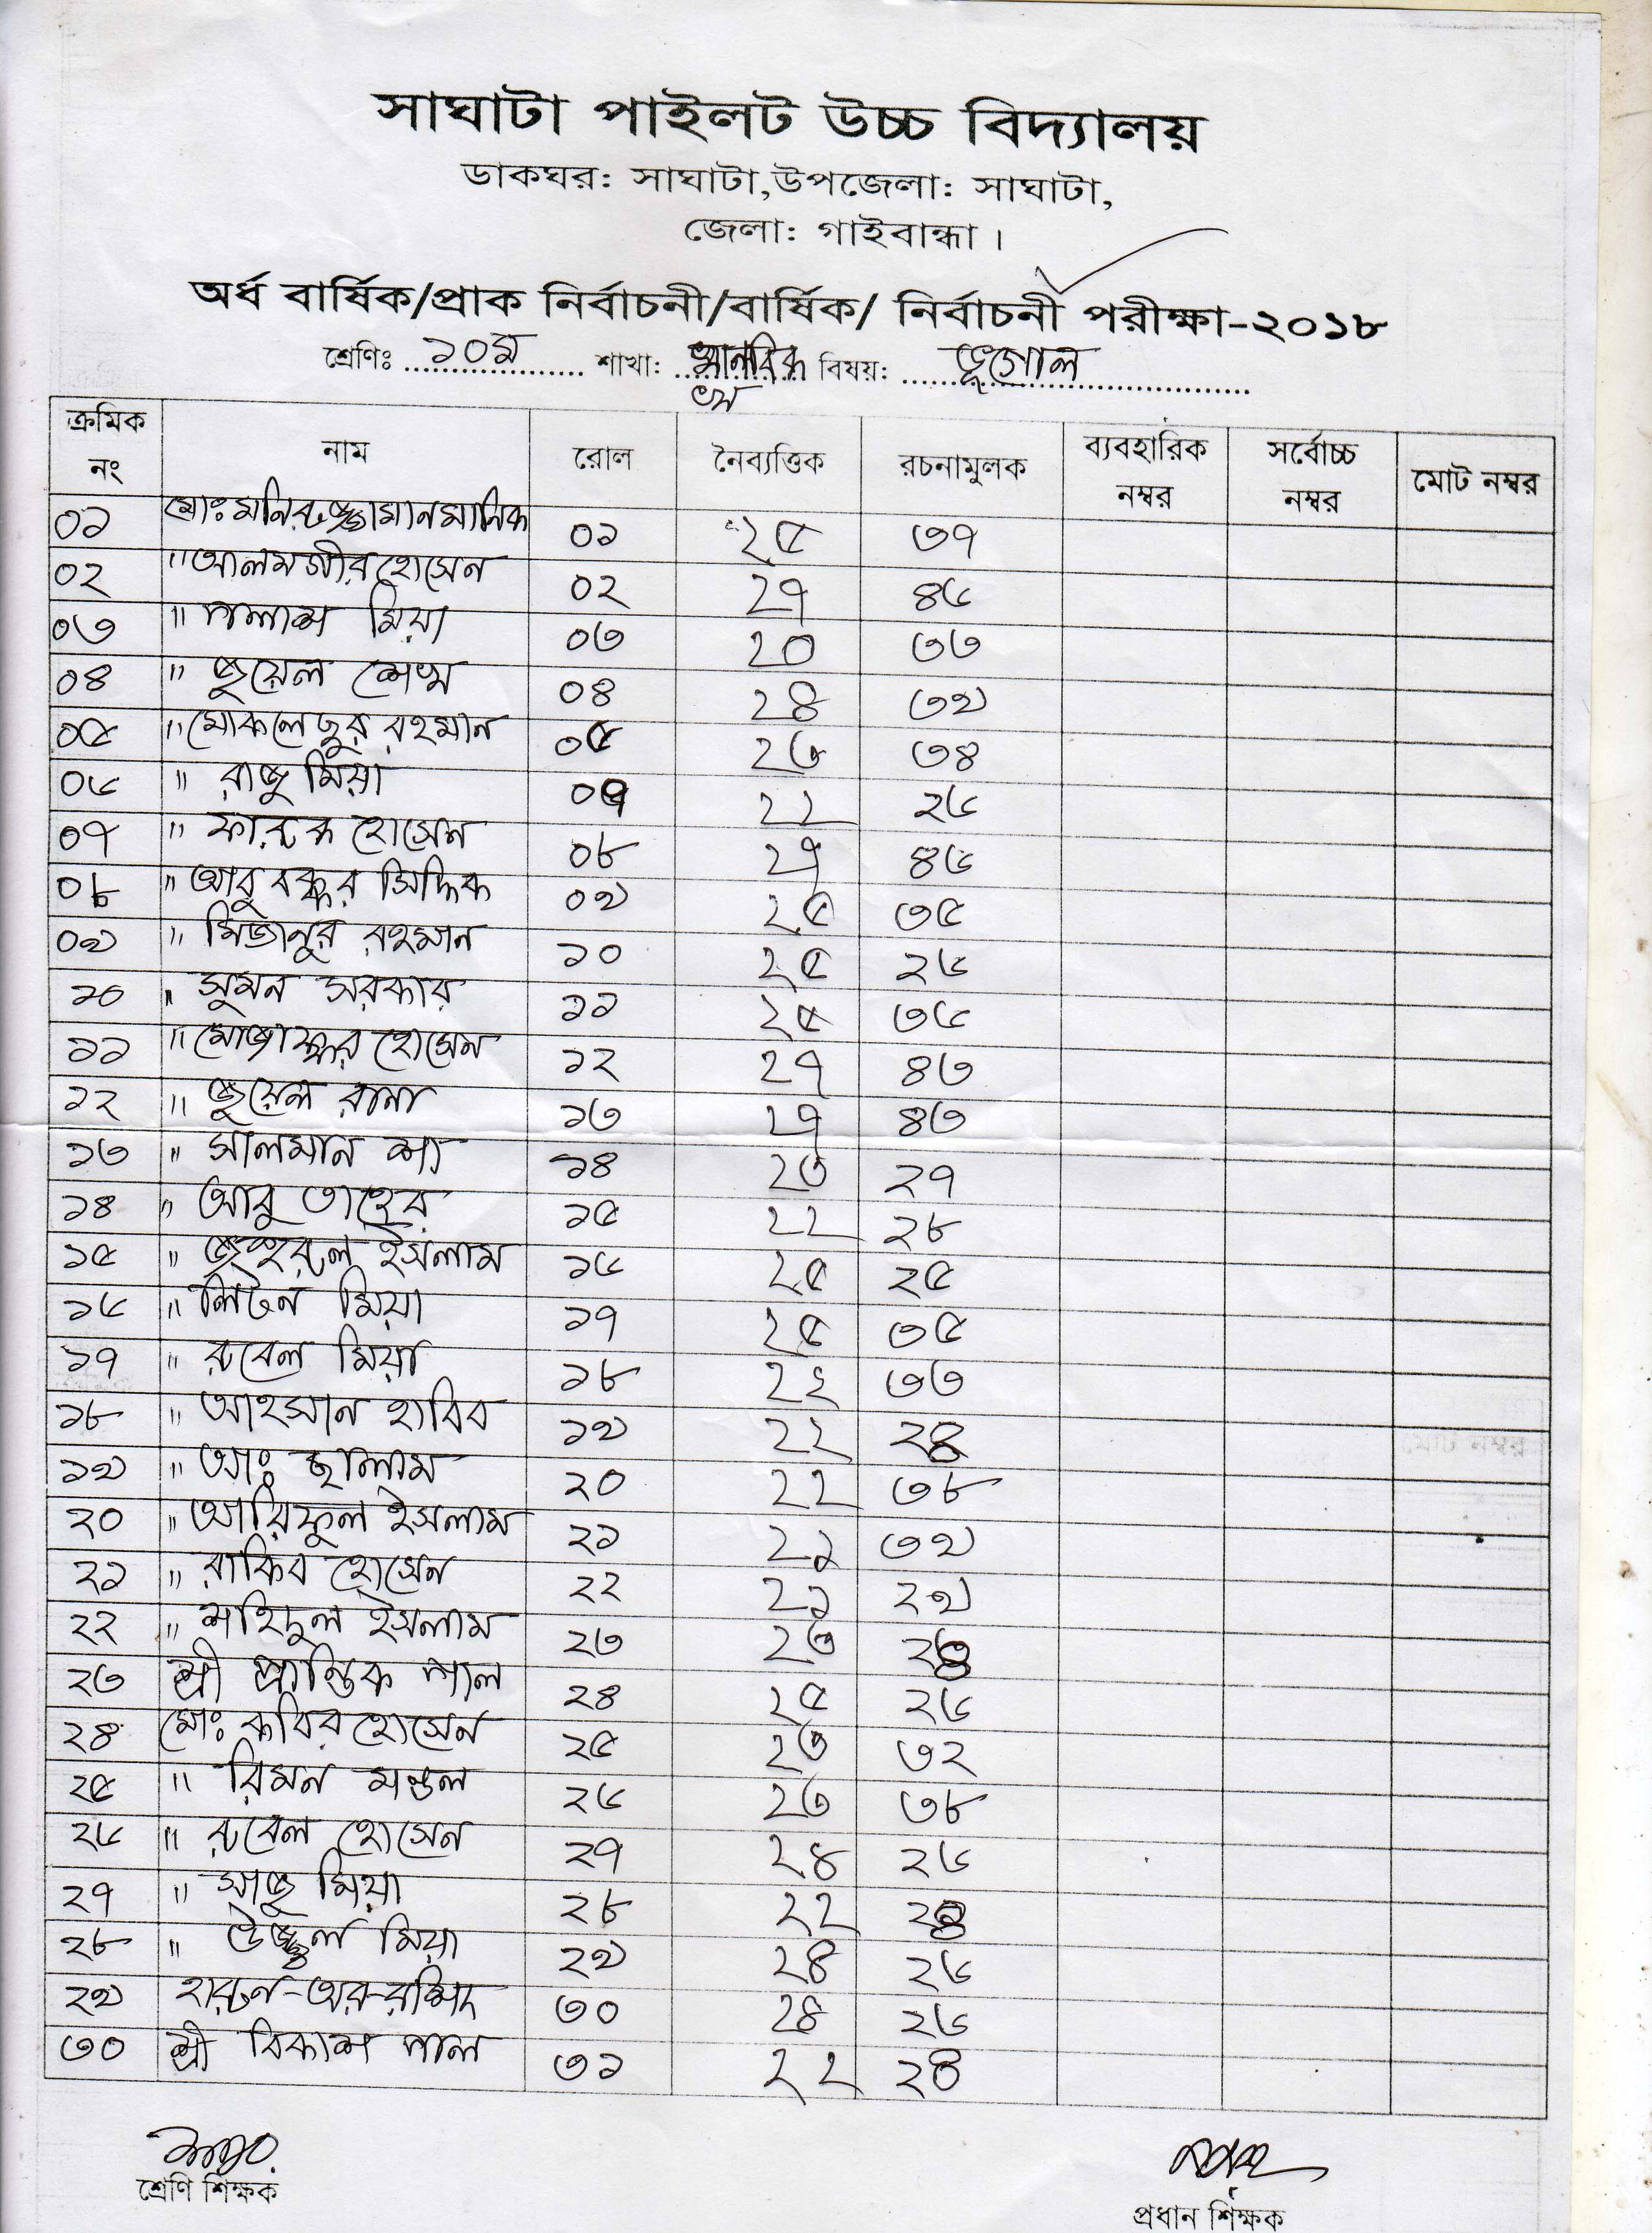 সাঘাটা পাইলট উচ্চ বিদ্যালয়
ডাকঘর: সাঘাটা,উপজেলা: সাঘাটা,
জেলা: গাইবান্ধা ।
অর্ধ বার্ষিক/প্রাক নির্বাচনী/বার্ষিক/ নির্বাচনী পরীক্ষা-২০১৮
শ্রেণিঃ ১০ম শাখা: মানবিক বিষয়: ভূগোল
ক্রমিক নং নাম রোল নৈব্যত্তিক রচনামুলক ব্যবহারিক নম্বর সর্বোচ্চ নম্বর মোট নম্বর
০১ মোঃ মনিরুজ্জামান মানিক ০১ ২৫ ৩৭
০২ " আলমগীর হোসেন ০২ ২৭ ৪৬
০৩ " পলাশ মিয়া ০৩ ২০ ৩৩
০৪ " জুয়েল শেখ ০৪ ২৪ ৩৯
০৫ " মোকলেছুর রহমান ০৫ ২৩ ৩৪
০৬ " রাজু মিয়া ০৭ ২২ ২৬
০৭ " ফারুক হোসেন ০৮ ২৭ ৪৬
০৮ " আবু বক্কর সিদ্দিক ০৯ ২৫ ৩৫
০৯ " মিজানুর রহমান ১০ ২৫ ২৬
১০ " সুমন সরকার ১১ ২৫ ৩৬
১১ " মোজাফ্ফর হোসেন ১২ ২৭ ৪৩
১২ " জুয়েল রানা ১৩ ২৭ ৪৩
১৩ " সালমান শা ১৪ ২৩ ২৭
১৪ " আবু তাহের ১৫ ২২ ২৮
১৫ " জহুরুল ইসলাম ১৬ ২৫ ২৫
১৬ " লিটন মিয়া ১৭ ২৫ ৩৫
১৭ " রুবেল মিয়া ১৮ ২২ ৩৩
১৮ " আহসান হাবিব ১৯ ২২ ২৪
১৯ " আঃ ছালাম ২০ ২২ ৩৮
২০ " আরিফুল ইসলাম ২১ ২১ ৩৯
২১ " রাকিব হোসেন ২২ ২১ ২৯
২২ " শহিদুল ইসলাম ২৩ ২৩ ২৪
২৩ শ্রী প্রান্তিক পাল ২৪ ২৫ ২৬
২৪ মোঃ কবির হোসেন ২৫ ২৩ ৩২
২৫ " রিমন মণ্ডল ২৬ ২৩ ৩৮
২৬ " রুবেল হোসেন ২৭ ২৪ ২৬
২৭ " সাজু মিয়া ২৮ ২২ ২৪
২৮ " উজ্জ্বল মিয়া ২৯ ২৪ ২৬
২৯ হারুন-অর-রশিদ ৩০ ২৪ ২৬
৩০ শ্রী বিকাশ পাল ৩১ ২২ ২৪
শ্রেণি শিক্ষক
প্রধান শিক্ষক